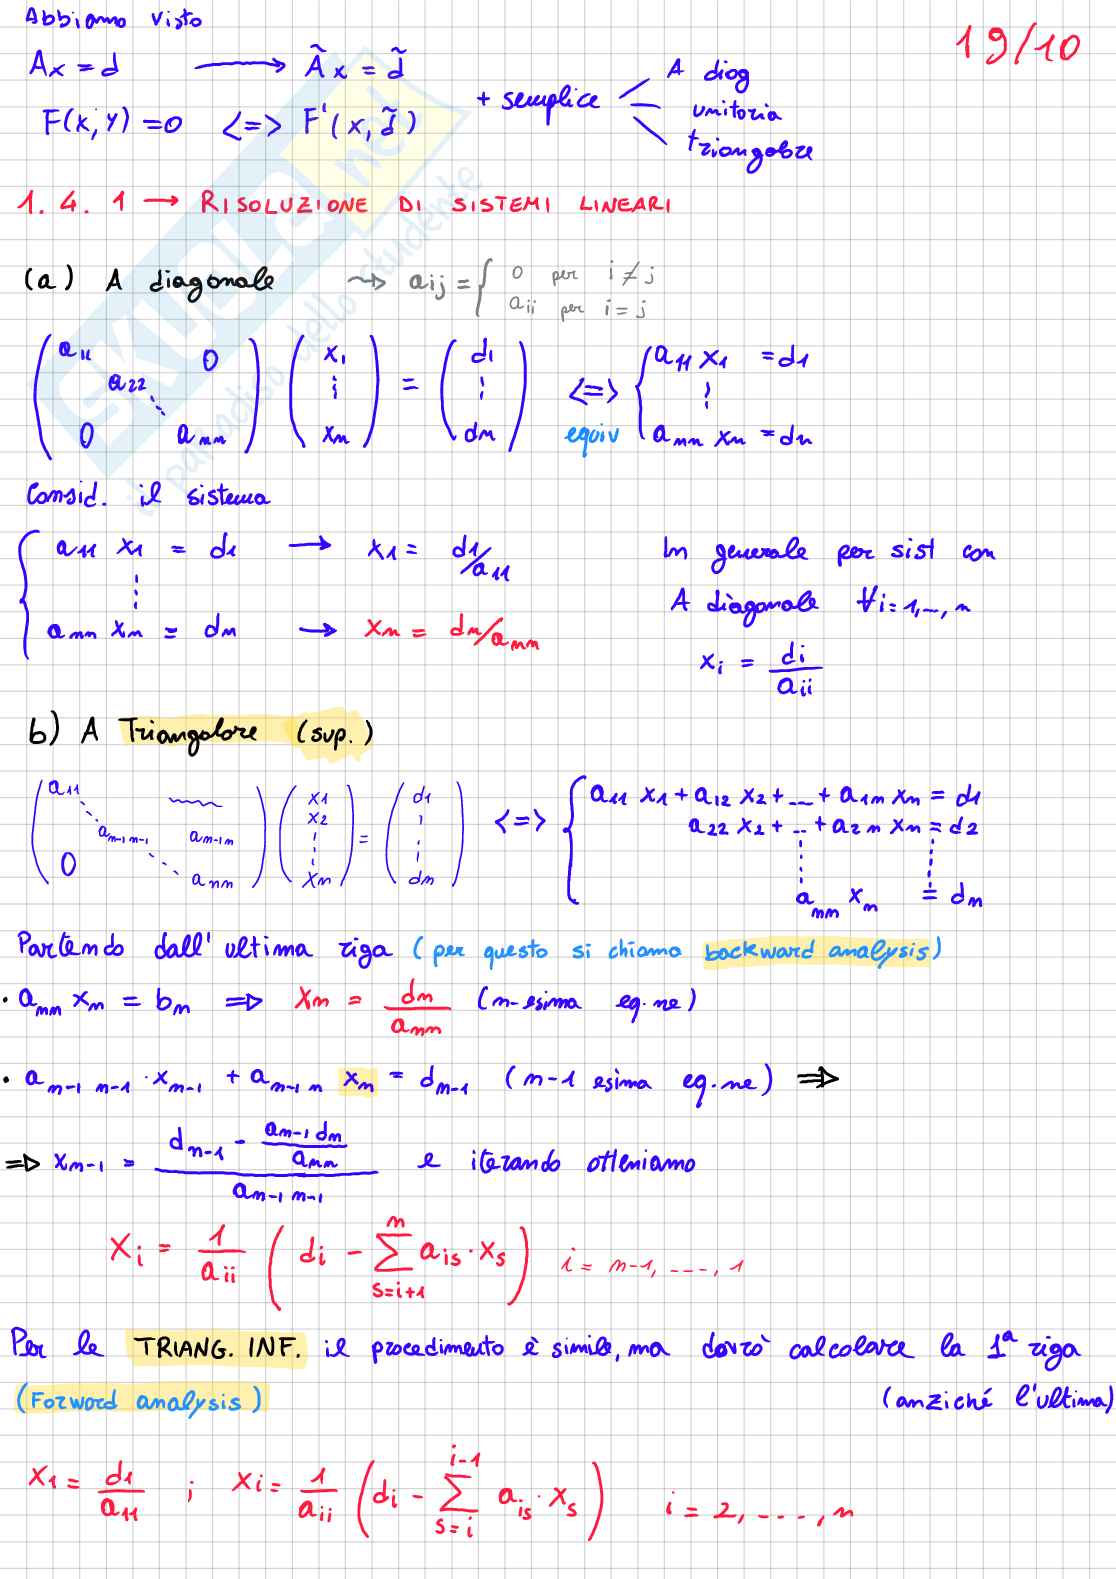 Abbiamo visto
19/10
Ax = d ⟶ Ãx = d̃
+ semplice
A diag
unitaria
triangolare
F(x, y) = 0 <=> F'(x, d̃)
1.4.1 → RISOLUZIONE DI SISTEMI LINEARI
(a) A diagonale ⇝ aij = { 0 per i ≠ j
aii per i = j
(a11 0 a22 ⋱ 0 ann) (x1 ⋮ xn) = (d1 ⋮ dn) <=> equiv { a11 x1 = d1
⋮
ann xn = dn
Consid. il sistema
{ a11 x1 = d1 → x1 = d1/a11
⋮
ann xn = dn → xn = dn/ann
In generale per sist con
A diagonale ∀i = 1,..,n
xi = di/aii
b) A Triangolare (sup.)
(a11 an-1n-1 an-1n 0 ann) (x1 x2 ⋮ xn) = (d1 ⋮ dn) <=> { a11 x1 + a12 x2 + ... + a1n xn = d1
a22 x2 + .. + a2n xn = d2
ann xn = dn
Partendo dall'ultima riga (per questo si chiama backward analysis)
· ann xn = bn => xn = dn/ann (n-esima eq.ne)
· an-1 n-1 · xn-1 + an-1 n xn = dn-1 (n-1 esima eq.ne) =>
=> xn-1 = (dn-1 - an-1 dn/ann)/an-1 n-1 e iterando otteniamo
Xi = 1/aii ( di - ∑ s=i+1 n ais · xs ) i = n-1, ----, 1
Per le TRIANG. INF. il procedimento è simile, ma dovrò calcolare la 1ª riga
(Forward analysis) (anziché l'ultima)
x1 = d1/a11 ; xi = 1/aii ( di - ∑ s=i i-1 ais · xs ) i = 2, ----, n
SKUOLA.net
il paradiso dello studente